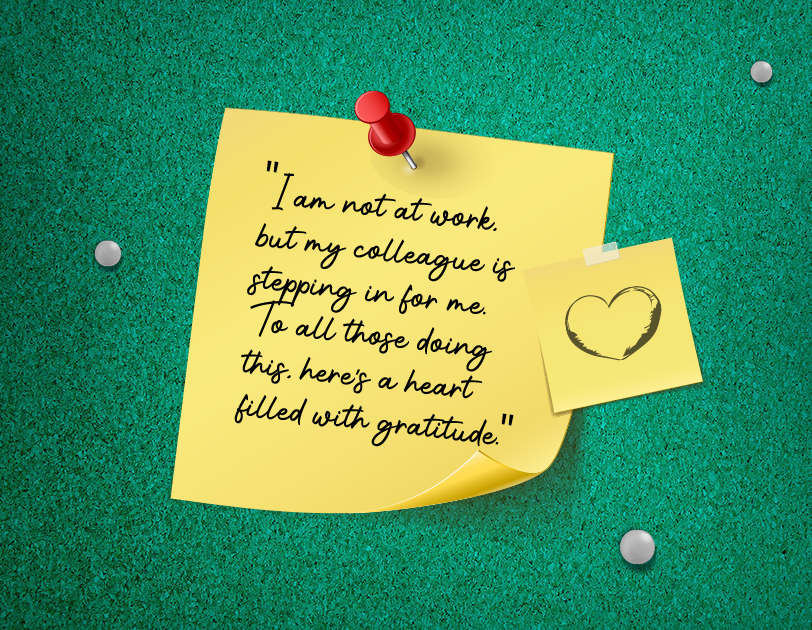 "I am not at work.
but my colleague is
stepping in for me.
To all those doing
this. here's a heart
filled with gratitude."